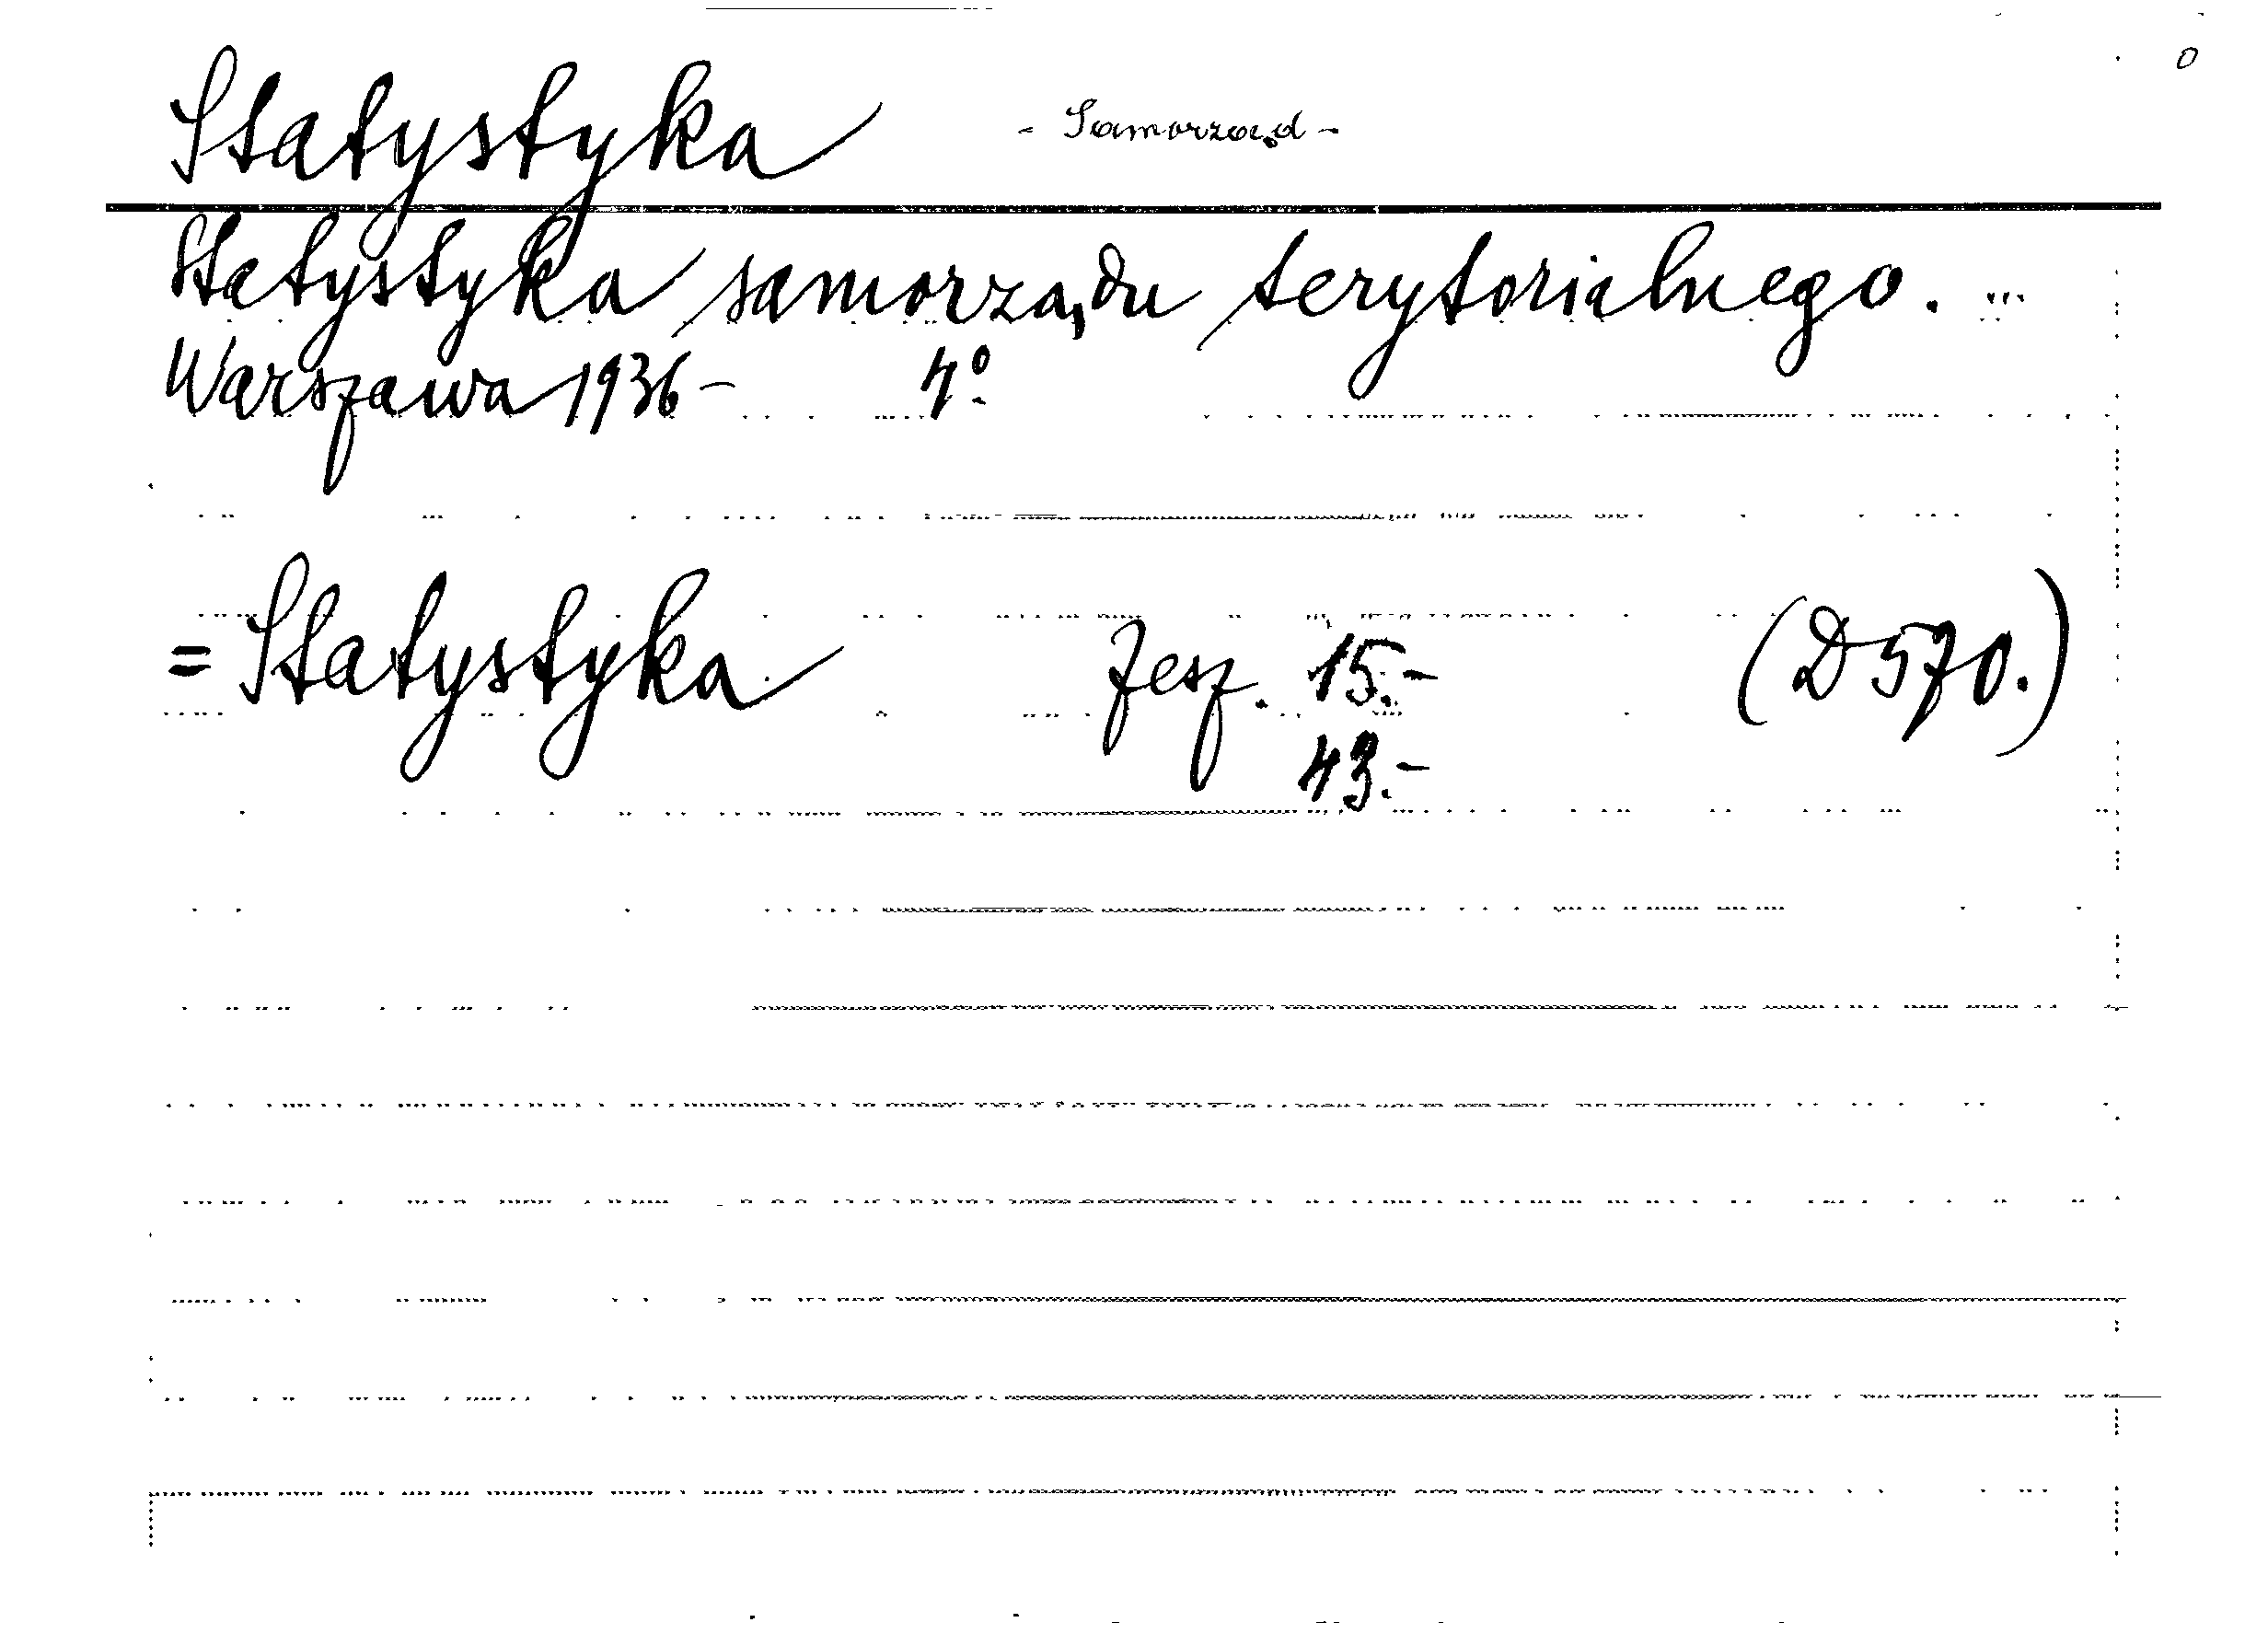 Statystyka - Samorząd -
Statystyka samorządu terytorialnego. ...
Warszawa 1936- 4º
= Statystyka Zesz. 15.- (D 570.)
43.-